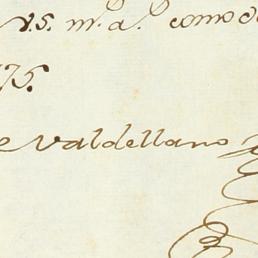 V.S. m.s a.s como
75.
e Valdellano